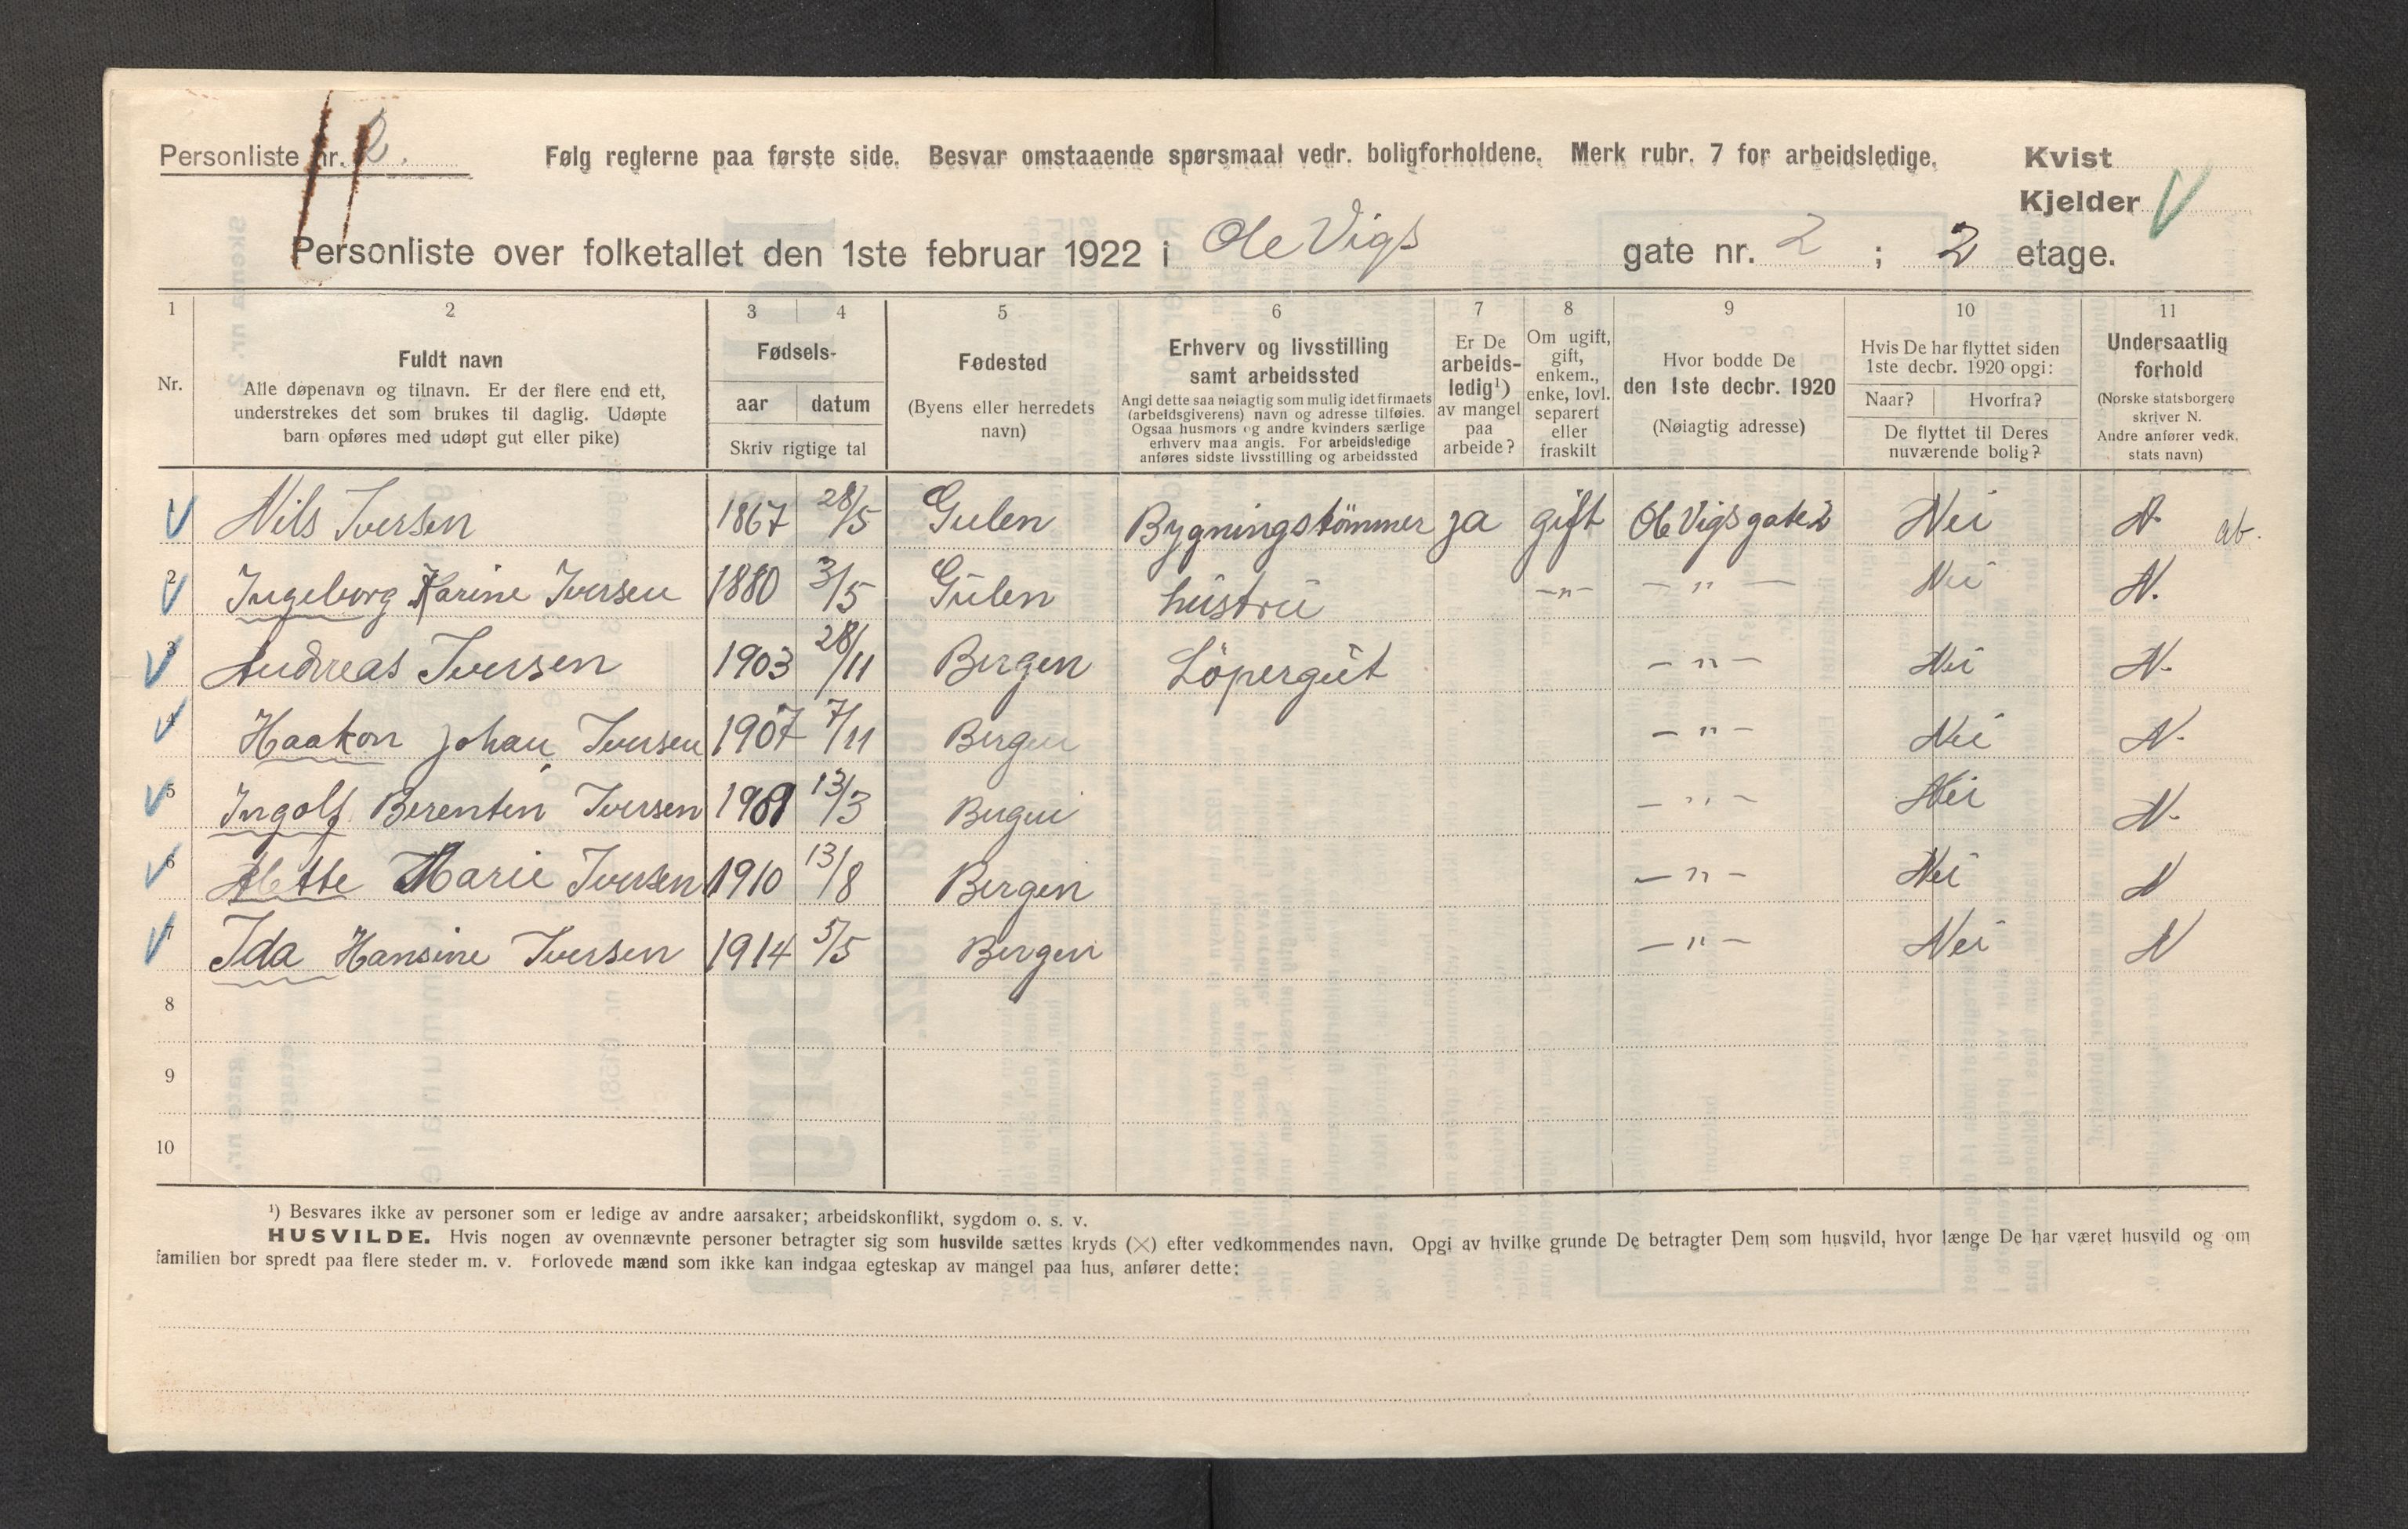 Personliste nr. 2.
Følg reglerne paa første side. Besvar omstaaende spørsmaal vedr. boligforholdene. Merk rubr. 7 for arbeidsledige.
Kvist
Kjelder
Personliste over folketallet den 1ste februar 1922 i Ole Vigs gate nr. 2 ; 2 etage.
1 2 3 4 5 6 7 8 9 10 11
Nr.
Fuldt navn
Alle døpenavn og tilnavn. Er der flere end ett,
understrekes det som brukes til daglig. Udøpte
barn opføres med udøpt gut eller pike)
Fødsels-
aar datum
Skriv rigtige tal
Fødested
(Byens eller herredets
navn)
Erhverv og livsstilling
samt arbeidssted
Angi dette saa nøiagtig som mulig idet firmaets
(arbeidsgiverens) navn og adresse tilføies.
Ogsaa husmors og andre kvinders særlige
erhverv maa angis. For arbeidsledige
anføres sidste livsstilling og arbeidssted
Er De
arbeids-
ledig¹)
av mangel
paa
arbeide?
Om ugift,
gift,
enkem.,
enke, lovl.
separert
eller
fraskilt
Hvor bodde De
den 1ste decbr. 1920
(Nøiagtig adresse)
Hvis De har flyttet siden
1ste decbr. 1920 opgi:
Naar? Hvorfra?
De flyttet til Deres
nuværende bolig?
Undersaatlig
forhold
(Norske statsborgere
skriver N.
Andre anfører vedk.
stats navn)
Nils Iversen 1867 28/5 Gulen Bygningstömmer ja gift Ole Vigs gate 2 Nei N. ab.
2 Ingeborg Karine Iversen 1880 3/5 Gulen hustru —„— — „ — Nei N.
3 Andreas Iversen 1903 28/11 Bergen Löpergut — „ — Nei N.
4 Haakon Johan Iversen 1907 7/11 Bergen — „ — Nei N.
5 Ingolf Berentin Iversen 13/3 Bergen — „ — Nei N.
6 Mette Marie Iversen 1910 13/8 Bergen — „ — Nei N
7 Ida Hansine Iversen 1914 5/5 Bergen — „ — Nei N
8
9
10
¹) Besvares ikke av personer som er ledige av andre aarsaker; arbeidskonflikt, sygdom o. s. v.
HUSVILDE. Hvis nogen av ovennævnte personer betragter sig som husvilde sættes kryds (×) efter vedkommendes navn. Opgi av hvilke grunde De betragter Dem som husvild, hvor længe De har været husvild og om
familien bor spredt paa flere steder m. v. Forlovede mænd som ikke kan indgaa egteskap av mangel paa hus, anfører dette: